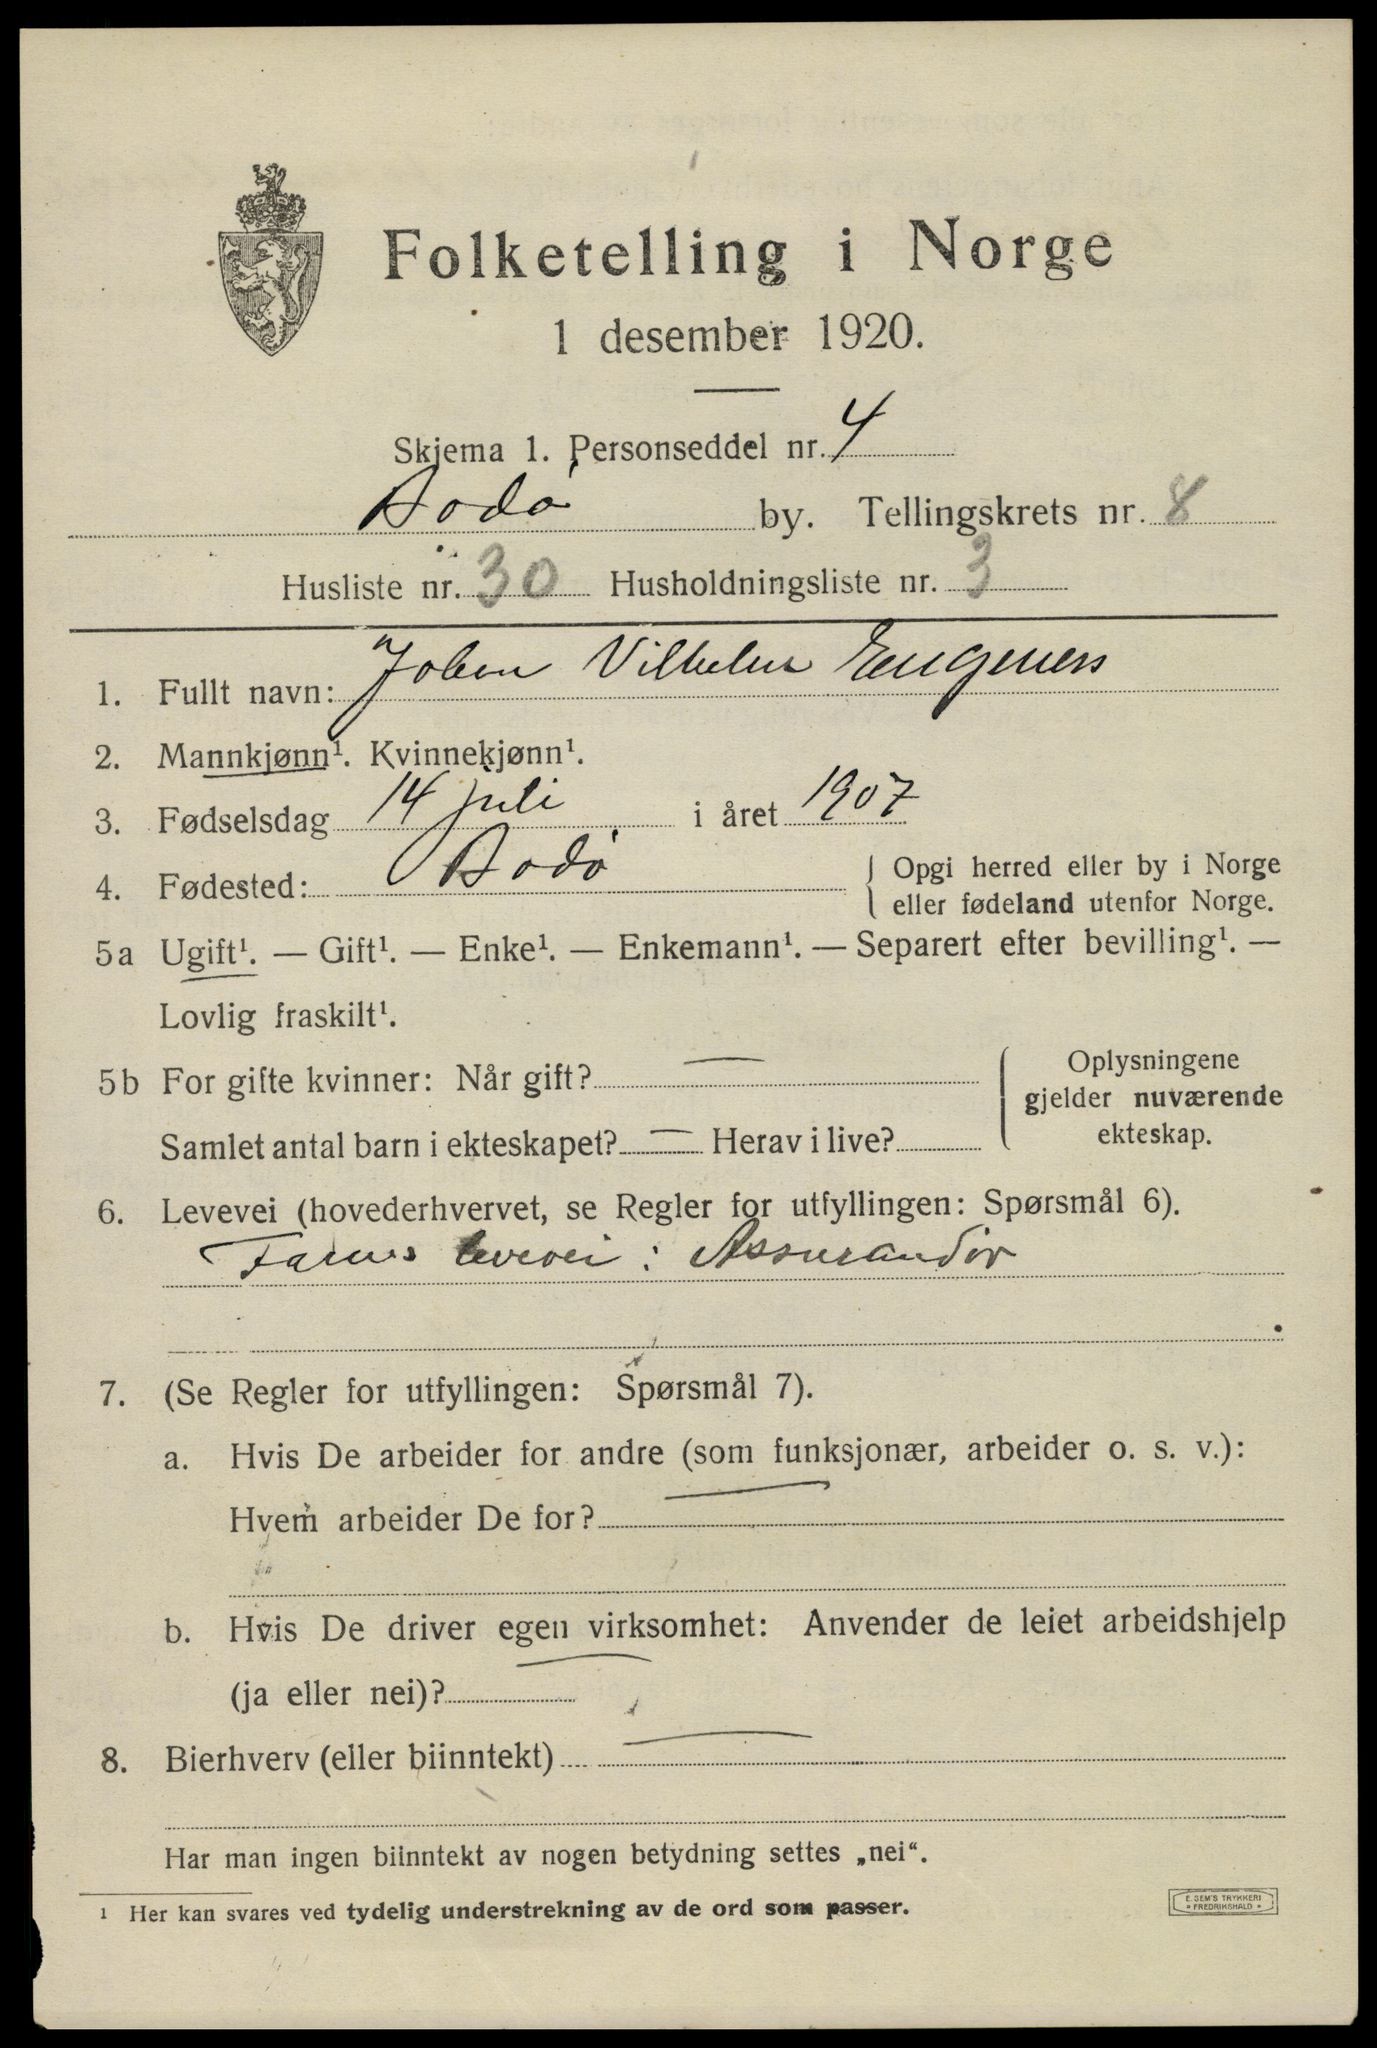 Folketelling i Norge
1 desember 1920.
Skjema 1. Personseddel nr. 4
Bodø by. Tellingskrets nr. 8
Husliste nr. 30 Husholdningsliste nr. 3
1. Fullt navn: Johan Vilhelm
2. Mannkjønn¹. Kvinnekjønn¹.
3. Fødselsdag 14 juli i året 1907
4. Fødested: Bodø { Opgi herred eller by i Norge
eller fødeland utenfor Norge.
5a Ugift¹. — Gift¹. — Enke¹. — Enkemann¹. — Separert efter bevilling¹. —
Lovlig fraskilt¹.
5b For gifte kvinner: Når gift? — { Oplysningene
gjelder nuværende
ekteskap.
Samlet antal barn i ekteskapet? — Herav i live?
6. Levevei (hovederhvervet, se Regler for utfyllingen: Spørsmål 6).
Farens levevei: Assurandør
7. (Se Regler for utfyllingen: Spørsmål 7).
a. Hvis De arbeider for andre (som funksjonær, arbeider o. s. v.):
Hvem arbeider De for? —
b. Hvis De driver egen virksomhet: Anvender de leiet arbeidshjelp
(ja eller nei)? —
8. Bierhverv (eller biinntekt) —
Har man ingen biinntekt av nogen betydning settes „nei“.
¹ Her kan svares ved tydelig understrekning av de ord som passer.
E. SEM'S TRYKKERI
* FREDRIKSHALD *